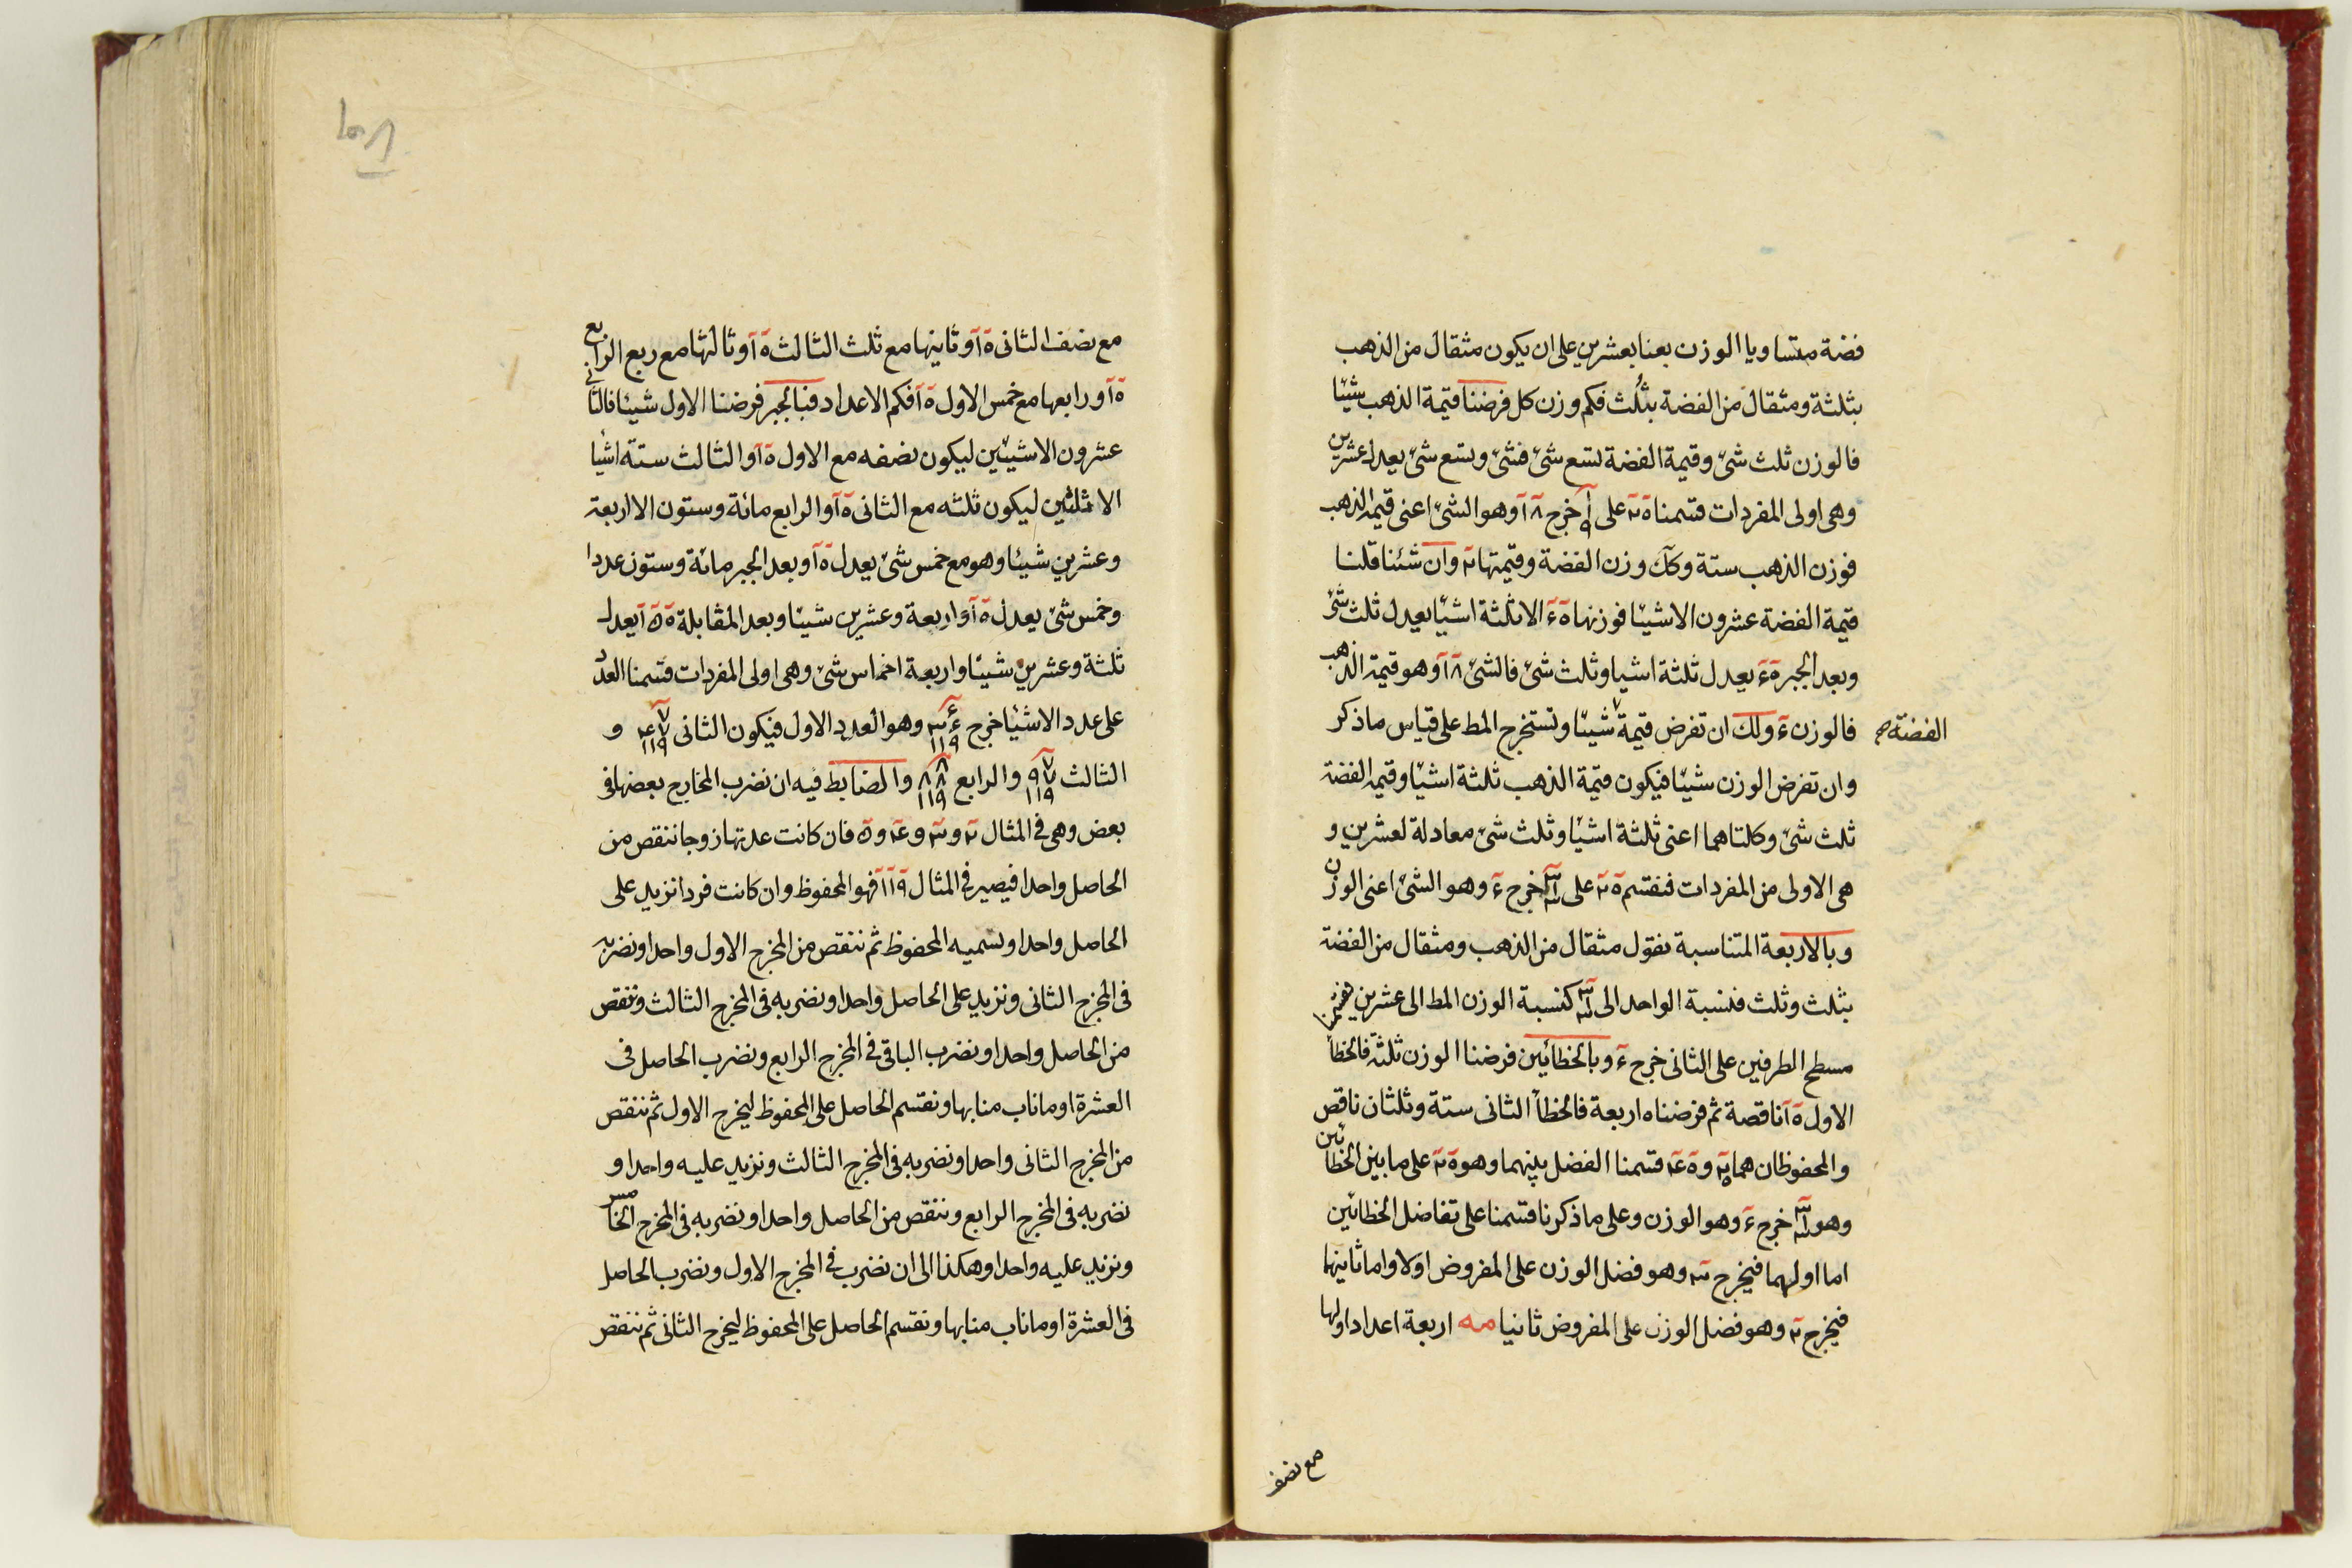 فضة متساويا الوزن بعنا بعشرين على ان يكون مثقال من الذهب
بثلثة ومثقال من الفضة بثُلث فكم وزن كل فرضنا قيمة الذهب شيئا
فالوزن ثلث شئ وقيمة الفضة تسع شئ فشئ وتسع شئ يعدل عشرين
وهى اولى المفردات قسمنا ٢٠ على خرج ١٨ وهو الشئ اعنى قيمة الذهب
فوزن الذهب ستة وكك وزن الفضة وقيمتها ٢ وان شئنا قلنا
قيمة الفضة عشرون الا شيئا فوزنها ٦٠ الا ثلثة اشيا يعدل ثلث شئ
وبعد الجبر ٦٠ يعدل ثلثة اشيا وثلث شئ فالشئ ١٨ وهو قيمة الذهب
فالوزن ٦ ولك ان تفرض قيمة شيئا وتستخرج المط على قياس ما ذكر
الفضة صح
وان تفرض الوزن شيئا فيكون قيمة الذهب ثلثة اشيا وقيمة الفضة
ثلث شئ وكلتاهما اعنى ثلثة اشيا وثلث شئ معادلة لعشرين و
هى الاولى من المفردات فنقسم ٢٠ على خرج ٦ وهو الشئ اعنى الوزن
وبالاربعة المتناسبة نقول مثقال من الذهب ومثقال من الفضة
بثلث وثلث فنسبة الواحد الى كنسبة الوزن المط الى عشرين فقسمنا
مسطح الطرفين على الثانى خرج ٦ وبالخطائين فرضنا الوزن ثلثة فالخطأ
الاول ١٠ ناقصة ثم فرضناه اربعة فالخطأ الثانى ستة وثلثان ناقص
والمحفوظان هما و ٤٠ قسمنا الفضل بينهما وهو ٢٠ على ما بين الخطائين
وهو خرج ٦ وهو الوزن وعلى ما ذكرنا قسمنا على تفاضل الخطائين
اما اولهما فيخرج ٣ وهو فضل الوزن على المفروض اولا واما ثانيها
فيخرج ٢ وهو فضل الوزن على المفروض ثانيا مه اربعة اعداد اولها
مع نصف
مع نصف الثانى ١٠ وثانيها مع ثلث الثالث ١٠ وثالثها مع ربع الرابع
١٠ ورابعها مع خمس الاول ١٠ فكم الاعداد فبالجبر فرضنا الاول شيئا فالثانى
عشرون الا شيئين ليكون نصفه مع الاول ١٠ والثالث ستة اشيا
الا ثلثين ليكون ثلثه مع الثانى ١٠ والرابع مائة وستون الا اربعة
وعشرين شيئا وهو مع خمس شئ يعدل ١٠ وبعد الجبر مائة وستون عددا
وخمس شئ يعدل ١٠ واربعة وعشرين شيئا وبعد المقابلة ١٥٠ يعدل
ثلثة وعشرين شيئا واربعة اخماس شئ وهى اولى المفردات قسمنا العدد
على عدد الاشيا خرج وهو العدد الاول فيكون الثانى و
الثالث والرابع والضابط فيه ان نضرب المخارج بعضها فى
بعض وهى فى المثال ٢ و ٣ و ٤ و ٥ فان كانت عدتها زوجا ننقص من
الحاصل واحدا فيصير فى المثال ١١٩ فهو المحفوظ وان كانت فردا نزيد على
الحاصل واحدا ونسميه المحفوظ ثم ننقص من المخرج الاول واحدا ونضربه
فى المخرج الثانى ونزيد على الحاصل واحدا ونضربه فى المخرج الثالث وننقص
من الحاصل واحدا ونضرب الباقى فى المخرج الرابع ونضرب الحاصل فى
العشرة او ما ناب منابها ونقسم الحاصل على المحفوظ ليخرج الاول ثم ننقص
من المخرج الثانى واحدا ونضربه فى المخرج الثالث ونزيد عليه واحدا و
نضربه فى المخرج الرابع وننقص من الحاصل واحدا ونضربه فى المخرج الخامس
ونزيد عليه واحدا وهكذا الى ان نضرب فى المخرج الاول ونضرب الحاصل
فى العشرة او ما ناب منابها ونقسم الحاصل على المحفوظ ليخرج الثانى ثم ننقص